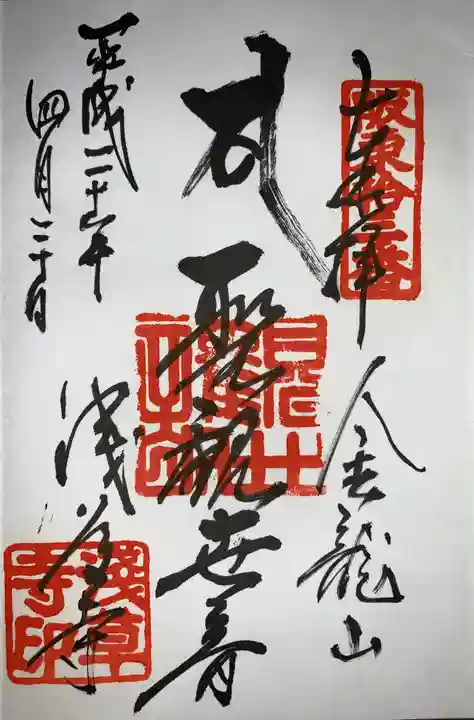 奉拝
坂東拾三番
金龍山
聖観世音
平成二十六年
四月二十日
浅草寺
淺草寺印